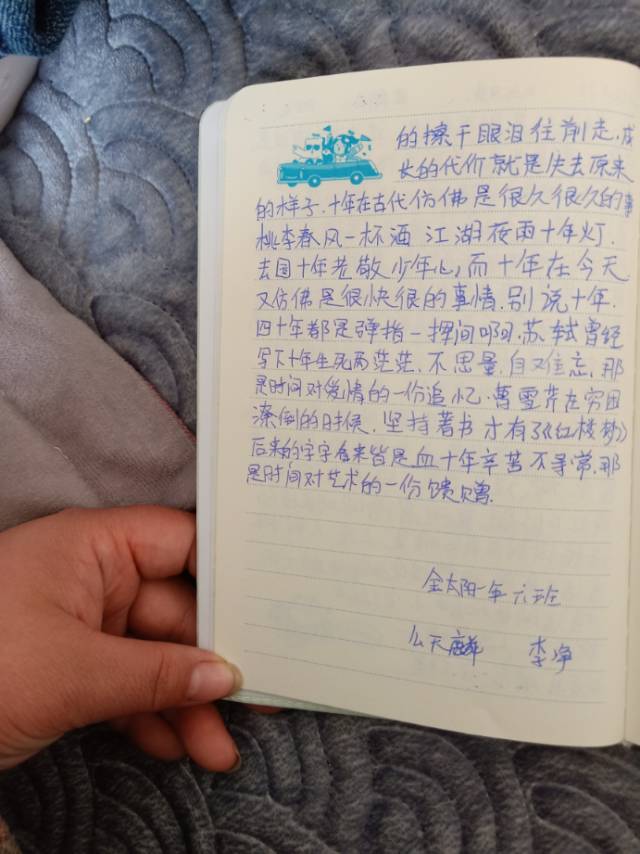 的擦干眼泪往前走,成
长的代价就是失去原来
的样子.十年在古代仿佛是很久很久的事
桃李春风一杯酒 江湖夜雨十年灯.
去国十年老散少年心,而十年在今天
又仿佛是很快很的事情.别说十年.
四十年都是弹指一挥间啊.苏轼曾经
写下十年生死两茫茫.不思量.自难忘.那
是时间对爱情的一份追忆.曹雪芹在穷困
潦倒的时候.坚持著书 才有了《红楼梦》
后来的字字看来皆是血十年辛苦不寻常.那
是时间对艺术的一份馈赠.
金太阳一年六班
么天麟 李净